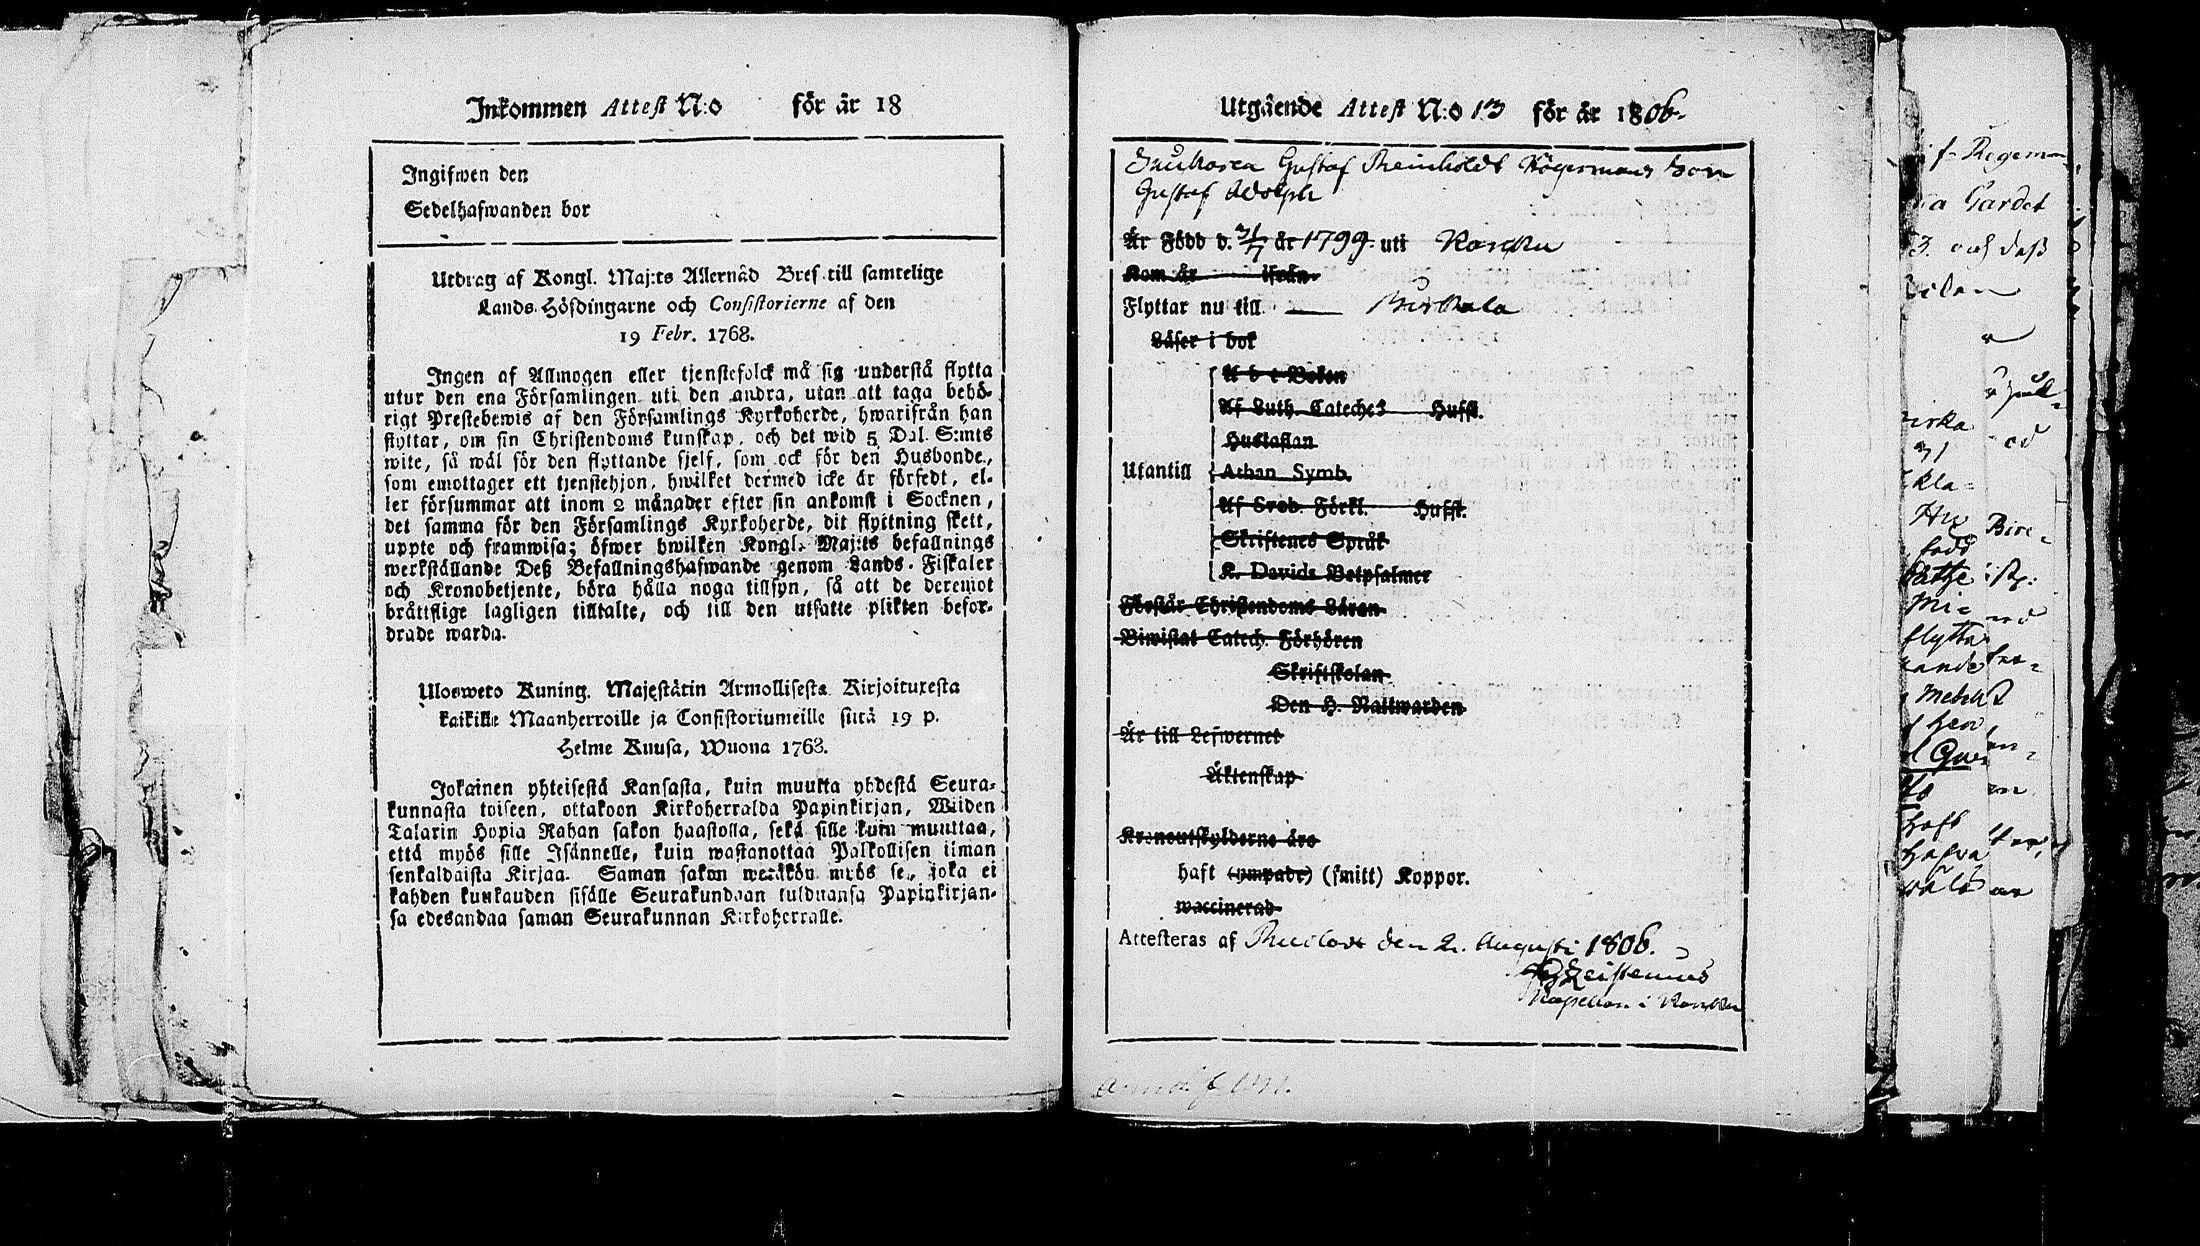 Inkommen Attest N:o för år 18
Ingifwen den
Sedelhafwanden bor
Utdrag af Kongl. Maj:ts Allernåd Bref till samtelige
Lands-Höfdingarne och Consistorierne af den
19 Febr. 1768.
Ingen af Allmogen eller tjenstefolck må sig understå flytta
utur den ena Församlingen uti den andra, utan att taga behö-
rigt Prestebewis af den Församlings Kyrkoherde, hwarifrån han
flyttar, om sin Christendoms kunskap, och det wid 5 Dal. S:mts
wite, så wäl för den flyttande sjelf, som ock för den Husbonde,
som emottager ett tjenstehjon, hwilket dermed icke är försedt, el-
ler försummar att inom 2 månader efter sin ankomst i Socknen,
det samma för den Församlings Kyrkoherde, dit flyttning skett,
uppte och framwisa; öfwer hwilken Kongl. Maj:ts befallnings
werkställande Deß Befallningshafwande genom Lands-Fiskaler
och Kronobetjente, böra hålla noga tillsyn, så att de deremot
bråttslige lagligen tilltalte, och till den utsatte plikten befor-
drade warda.
Ulosweto Kuning. Majestätin Armollisesta Kirjoituxesta
kaikille Maanherroille ja Consistoriumeille siitä 19 p.
Helme Kuusa, Wuona 1768.
Jokainen yhteisestä Kansasta, kuin muutta yhdestä Seura-
kunnasta toiseen, ottakoon Kirkoherralda Papinkirjan, Wiiden
Talarin Hopia Rahan sakon haastolla, sekä sille kuin muuttaa,
että myös sille Isännelle, kuin wastanottaa Palkollisen ilman
senkaldaista Kirjaa. Saman sakon wetäkön myös se, joka ei
kahden kuukauden sisälle Seurakundaan tulduansa Papinkirjan-
sa edesandaa saman Seurakunnan Kirkoherralle.
Utgående Attest N:o 13 för år 1806.
Gustaf Reinholdt Högermans Son
Gustaf Adolph
Är Född d. 31/7 år 1799 uti Karkku
Kom år ifrån
Flyttar nu till Birkkala
Läser i bok
A b c Boken
Af Luth. Cateches Hufst.
Hustaflan
Utantill Athan Symb.
Af Sveb. Förkl. Hufst.
Skriftenes Språk
K. Davids Botpsalmer
Förstår Christendoms Läran
Biwistat Catech. Förhören
Skriftskolan
Den H. Nattwarden
Är till Lefwernet
Äktenskap
Kronoutskylderne äro
haft (ympade) (smitt) Koppor.
waccinerad
Attesteras af den 2. Augusti 1806.
Kapellan i Karkku